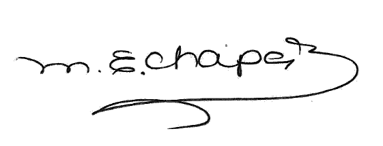 M. E. Chapet